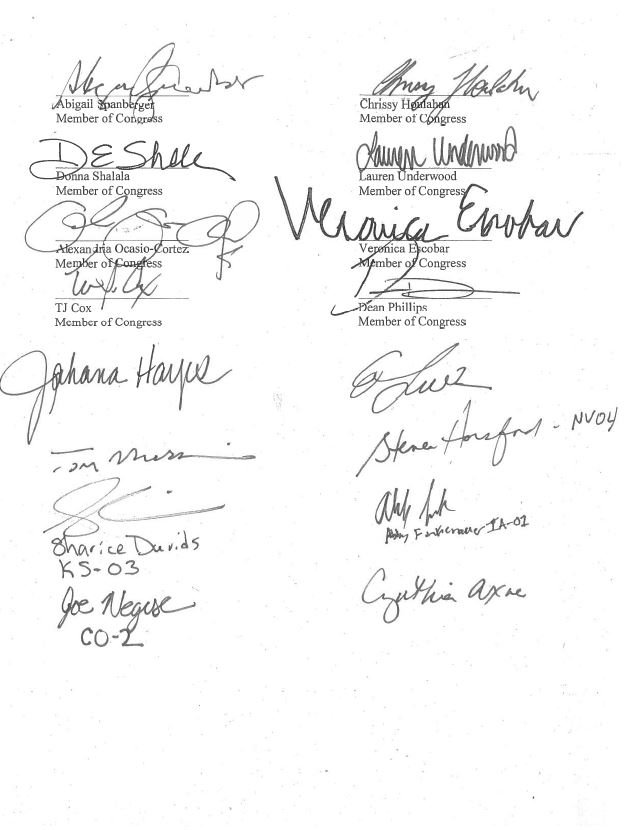 Abigail Spanberger
Abigail Spanberger
Member of Congress
Chrissy Houlahan
Chrissy Houlahan
Member of Congress
DEShala
Donna Shalala
Member of Congress
Lauren Underwood
Lauren Underwood
Member of Congress
Alexandria Ocasio-Cortez
Member of Congress
Veronica Escobar
Veronica Escobar
Member of Congress
TJ Cox
TJ Cox
Member of Congress
Dean Phillips
Member of Congress
Jahana Hayes
Steven Horsford - NV04
Tom
Sharice Davids
KS-03
Abby Finkenauer IA-01
Joe Neguse
CO-2
Cynthia Axne